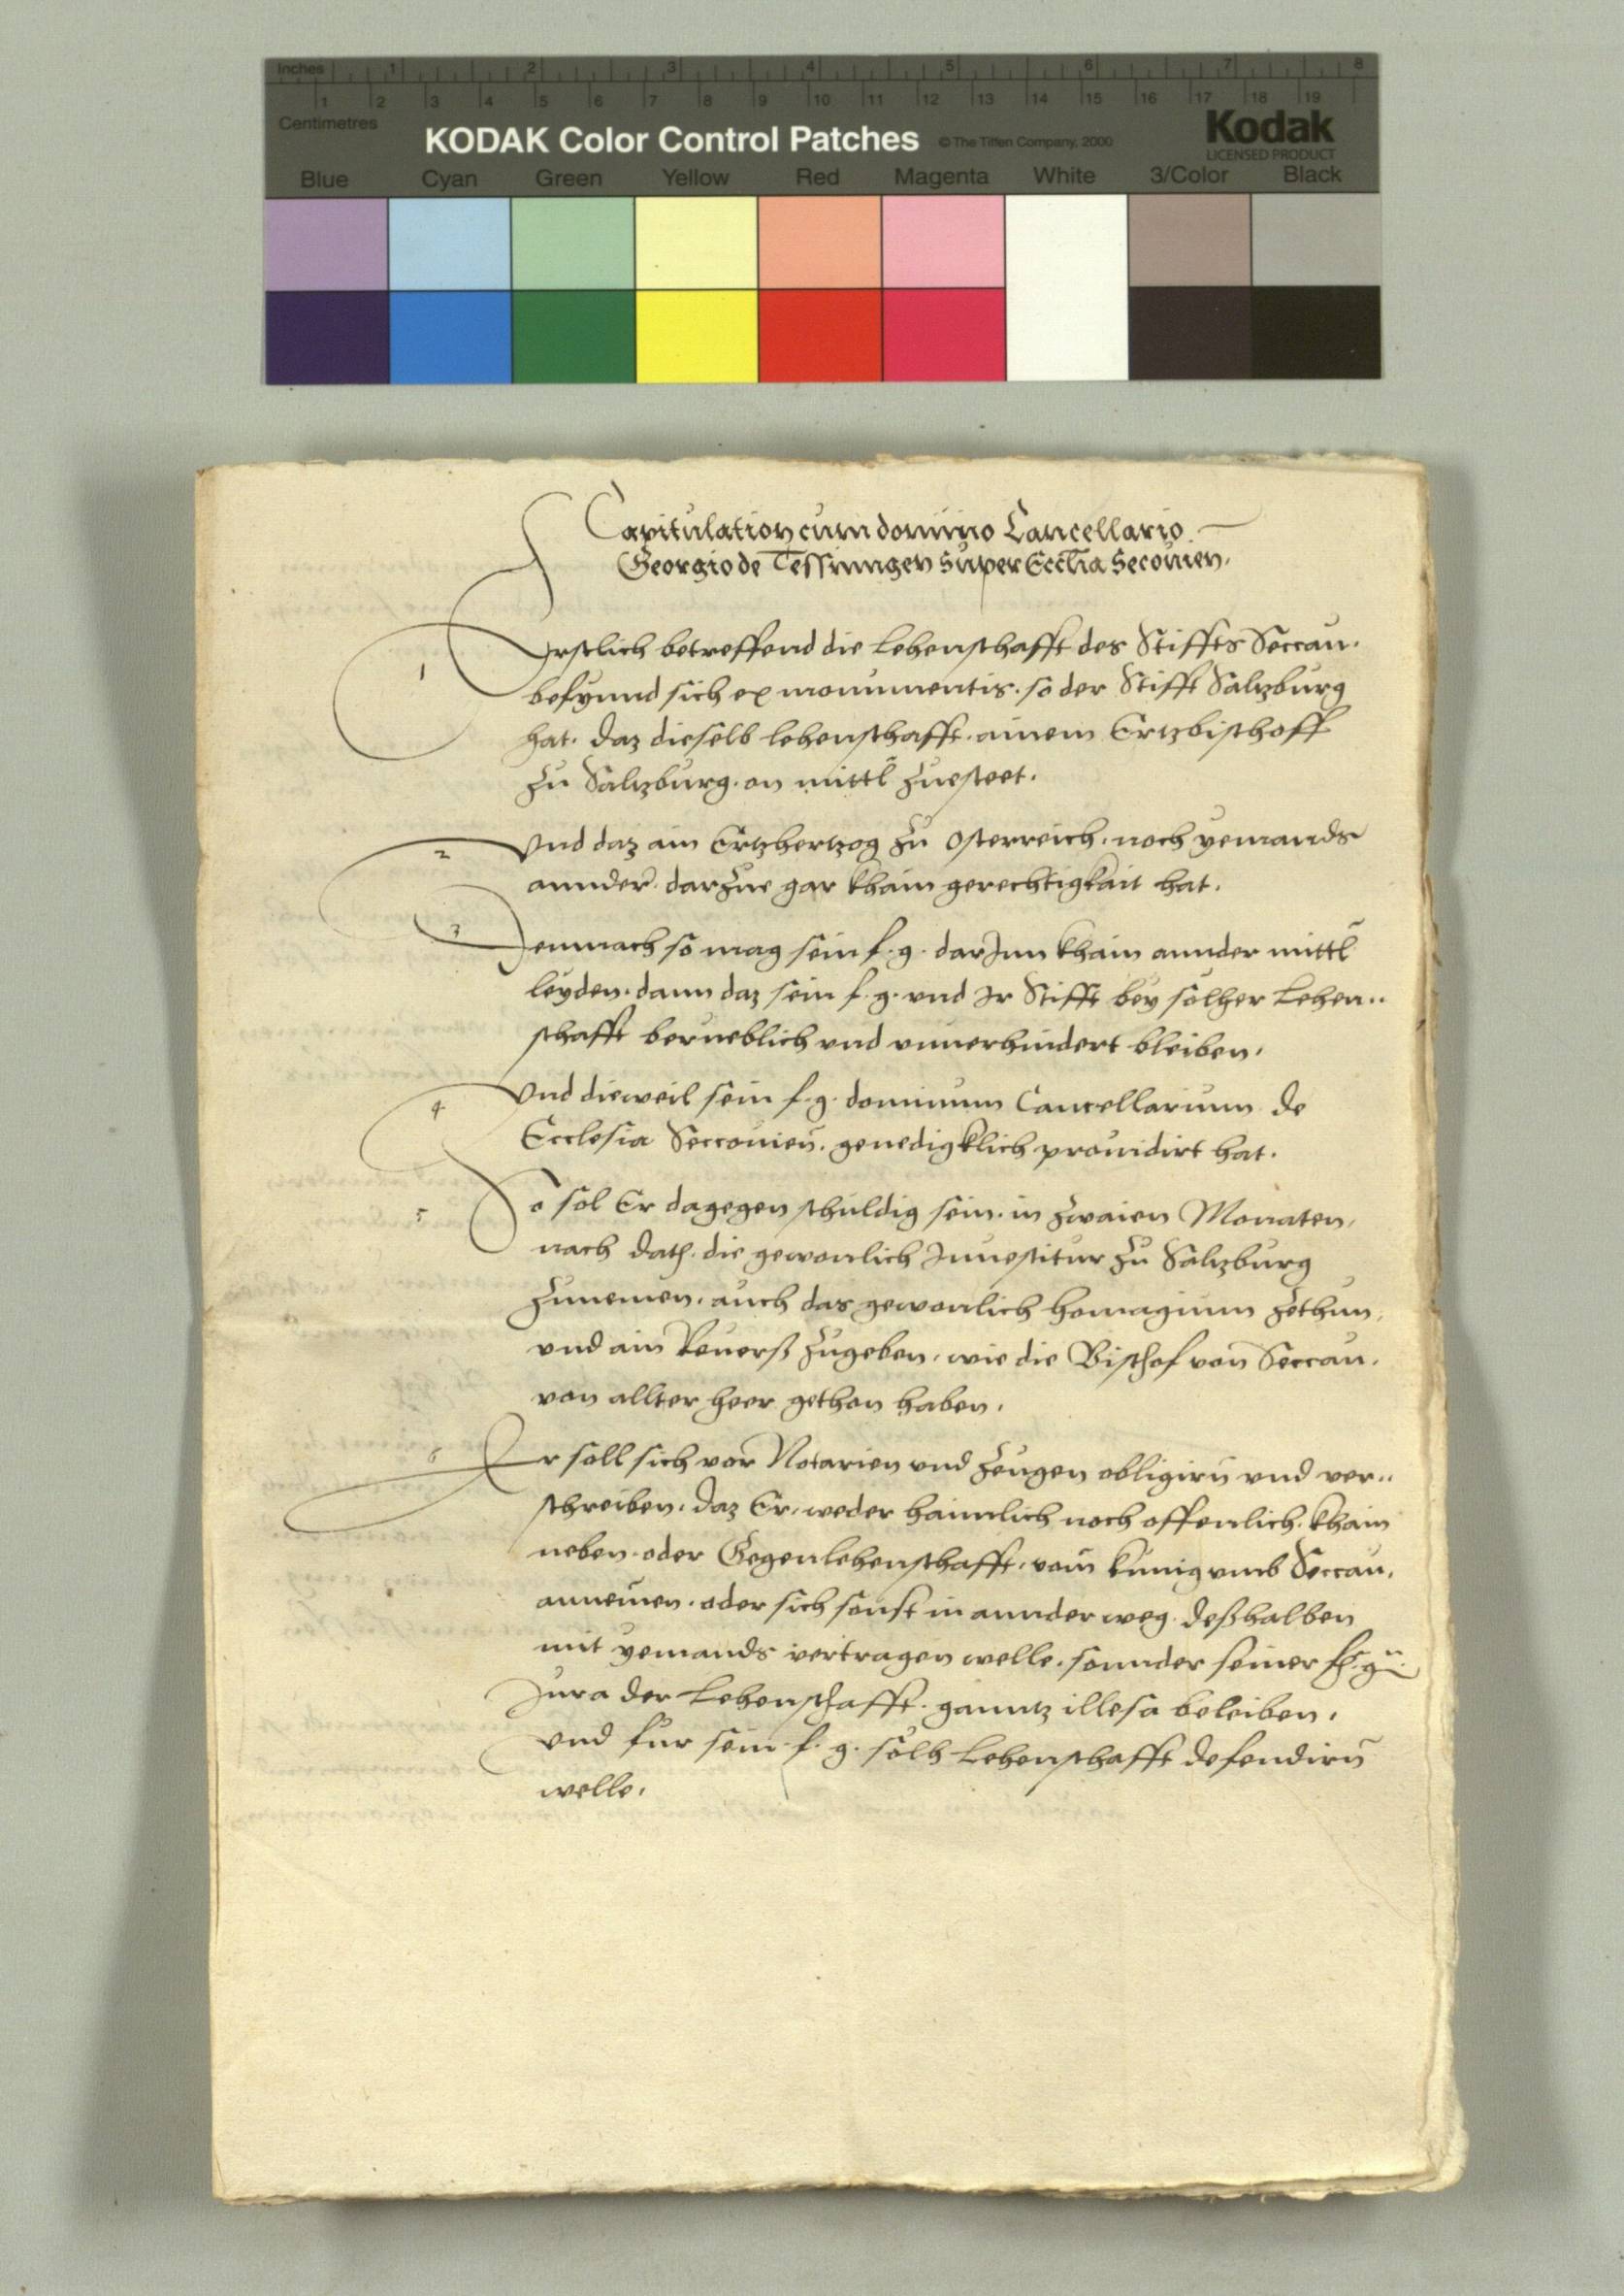 Inches 1 2 3 4 5 6 7 8
1 2 3 4 5 6 7 8 9 10 11 12 13 14 15 16 17 18 19
Centimetres
KODAK Color Control Patches © The Tiffen Company, 2000 Kodak
LICENSED PRODUCT
Blue Cyan Green Yellow Red Magenta White 3/Color Black
Capitulation cum domino Cancellario
Georgio de Tessingen super Eccl̃ia Secouien.
1 Erstlich betreffend die Lehenschafft des Stiffts Seccau.
befynnd sich ex monumentis. so der Stifft Saltzburg
hat. daz dieselb lehenschafft. ainem Ertzbischoff
zu Saltzburg. on mittl zuesteet.
2 Vnd daz ain Ertzhertzog zu Osterreich. noch yemands
annder. darzue gar khain gerechtigkait hat.
3 Demnach so mag sein f. g. darJnn khain annder mittl
leyden. dann daz sein f. g. vnd Jr Stifft bey solher Lehen..
schafft berueblich vnd vnuerhindert bleiben.
4 Vnd dieweil sein f. g. dominum Cancellarium de
Ecclesia Seccouien̄. genedigklich prouidirt hat.
5 So sol Er dagegen schuldig sein. in zwaien Monaten,
nach dat. die gewonlich Juuestitur zu Saltzburg
zunemen. auch das gewonlich homagium zethun,
vnd ain Reuerß zugeben. wie die Bischof von Seccau.
von allter heer gethon haben.
6 Er soll sich vor Notarien vnd zeugen obligirn̄ vnd ver..
schreiben. daz Er. weder haimlich noch offenlich. khain
neben. oder Gegenlehenschafft. vom kunig vmb Seccau.
annemen. oder sich sonst in annder weg deßhalben
mit yemands vertragen welle. sonnder seiner f. g.
Jura der Lehenschafft. ganntz illesa beleiben.
vnd für sein f. g. sölh Lehenschafft defendirn̄
welle.